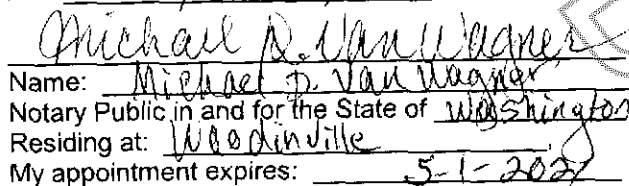 Michael D. Van Wagner
Name: Michael D. Van Wagner
Notary Public in and for the State of Washington
Residing at: Woodinville
My appointment expires: 5-1-2021